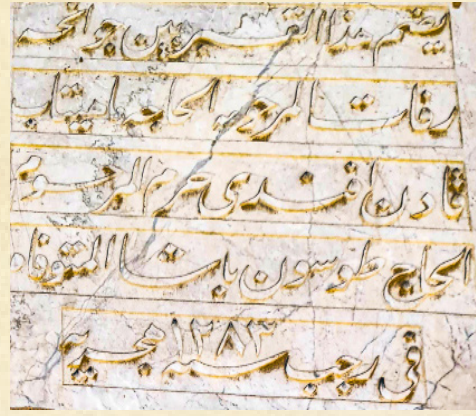 يضم هذا القبر بين جوانحه
رفات المرحومه الحاجه ماهيتاب
قادن افندى حرم المرحوم
الحاج طوسون باشا المتوفاه
فى رجب سنه ١٢٨٣ هجريه